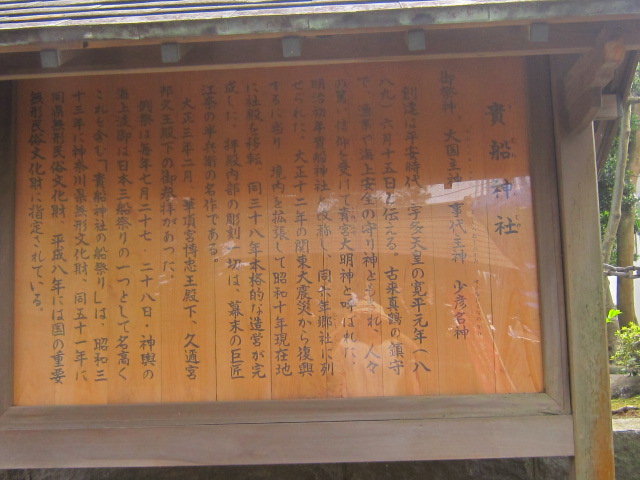 貴船神社
御祭神 大国主神 事代主神 少彦名神
創造は平安時代 宇多天皇の寛平元年(八
八九)六月十五日と伝える。古来真鶴の鎮守
で、漁業や海上安全の守り神とされ、人々
の篤い信仰を受けて貴宮大明神と呼ばれた。
明治初年貴船神社と改称し、同六年郷社に列
せられた。大正十二年の関東大震災から復興
するに当り 境内を拡張して昭和十年現在地
に社殿を移転 同三十八年本格的な造営が完
成した。拝殿内部の彫刻一切は、幕末の巨匠
江奈の半兵衛の名作である。
大正三年二月、華頂宮博忠王殿下、久邇宮
邦久王殿下の御参拝があった。
例祭は毎年七月二十七 二十八日・神輿の
海上渡御は日本三船祭りの一つとして名高く
これを含む「貴船神社の船祭り」は、昭和三
十三年に神奈川県無形文化財、同五十一年に
同県無形民俗文化財 平成八年には国の重要
無形民俗文化財に指定されている。